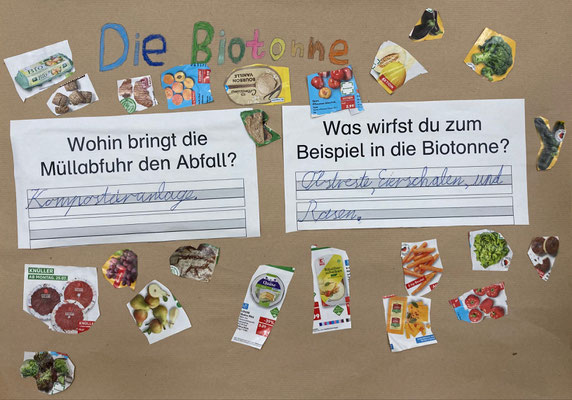 Die Biotonne
BOURBON
VANILLE
Wohin bringt die
Müllabfuhr den Abfall?
Kompostieranlage.
Was wirfst du zum
Beispiel in die Biotonne?
Obstreste, Eierschalen, und
Rasen.
KNÜLLER
AB MONTAG